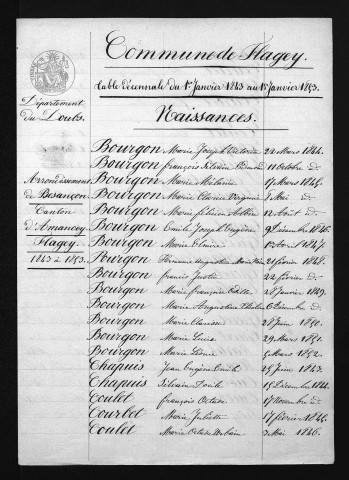 Commune de Flagey.
Table Décennale du 1er Janvier 1843 au 1er Janvier 1853.
Naissances.
Département
du Doubs.
Arrondissement
de Besançon
Canton
d'Amancey
Flagey.
1843 à 1853.
Bourgon Marie Joseph Victorine 22 Mars 1844.
Bourgon françois 11 Octobre do
Bourgon Marie Mélanie 17 Mars 1845.
Bourgon Marie Virginie Mai do
Bourgon Marie 12 Août do
Bourgon Emile Joseph Eugène 9 Décembre 1846.
Bourgon Marie Elmire 1847.
Bourgon 21 février 1848.
Bourgon francis Justin 22 février do
Bourgon Marie françoise 28 Janvier 1849.
Bourgon Marie Augustine Décembre do
Bourgon Marie Clarisse 28 Juin 1850.
Bourgon Marie 29 Mars 1851.
Bourgon Marie 5 Mars 1852.
Chapuis Jean Eugène 25 Juin 1843.
Chapuis 15 Décembre 1844.
Coulet françois Octave 17 Novembre do
Courbet Marie Juliette 17 février 1846.
Coulet Marie Mai 1846.